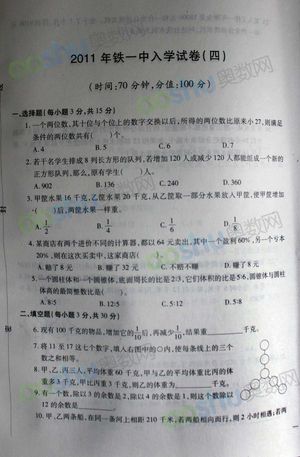 2011 年铁一中入学试卷(四)
(时间:70 分钟,分值:100 分)
一、选择题(每小题3分,共15分)
1. 一个两位数,其十位与个位上的数字交换以后,所得的两位数比原来小27,则满足
条件的两位数共有( )个。
A. 4 B. 5 C. 6 D. 7
2. 若干名学生排成8列长方形的队列,若增加120人或减少120人都能组成一个新的
正方形队列,那么,原有学生( )人。
A. 902 B. 136 C. 240 D. 360
3. 甲筐水果16千克,乙筐水果20千克,从乙筐取一部分水果放入甲筐,使甲筐增加
( )后,两筐水果一样重。
4. 某商店有两个进价不同的计算器,都以64元卖出,其中一个盈利60%,另一个亏本
20%,则在这次买卖中,这家商店( )
A. 赔了8元 B. 赚了32元 C. 不赔不赚 D. 赚了8元
5. 一个圆柱体和一个圆锥体,底面周长的比是2:3,它们的体积比是5:6,圆锥体与圆柱
体高的最简整数比是( )。
A. 8:5 B. 12:5 C. 5:12 D. 5:8
二、填空题(每小题3分,共30分)
6. 现有100千克的物品,增加它的1/10后,再减少1/10,结果重 千克。
7. 将11至17这七个数字,填入右图中的○内,使每条线上的三个
数之和相等。
8. 甲、乙、丙三人,平均体重60千克,甲与乙的平均体重比丙的体
重多3千克,甲比丙重3千克,则乙的体重为 千克。
9. 有一个数,除以3的余数是2,除以4的余数是1,则这个数除以
12的余数是
10. 甲、乙两船,在同一条河上相距210千米,若两船相向而行,则2小时相遇;若两